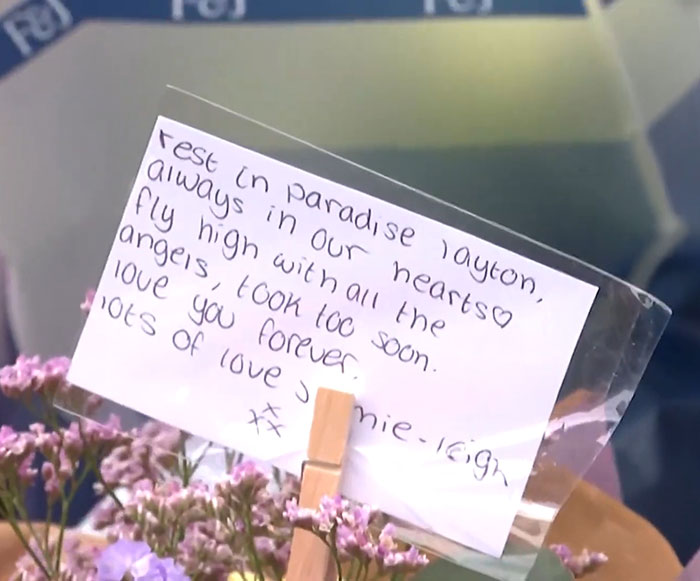 rest in paradise layton,
always in our hearts♡
fly high with all the
angels, took too soon.
love you forever.
lots of love J mie-leigh
xxx